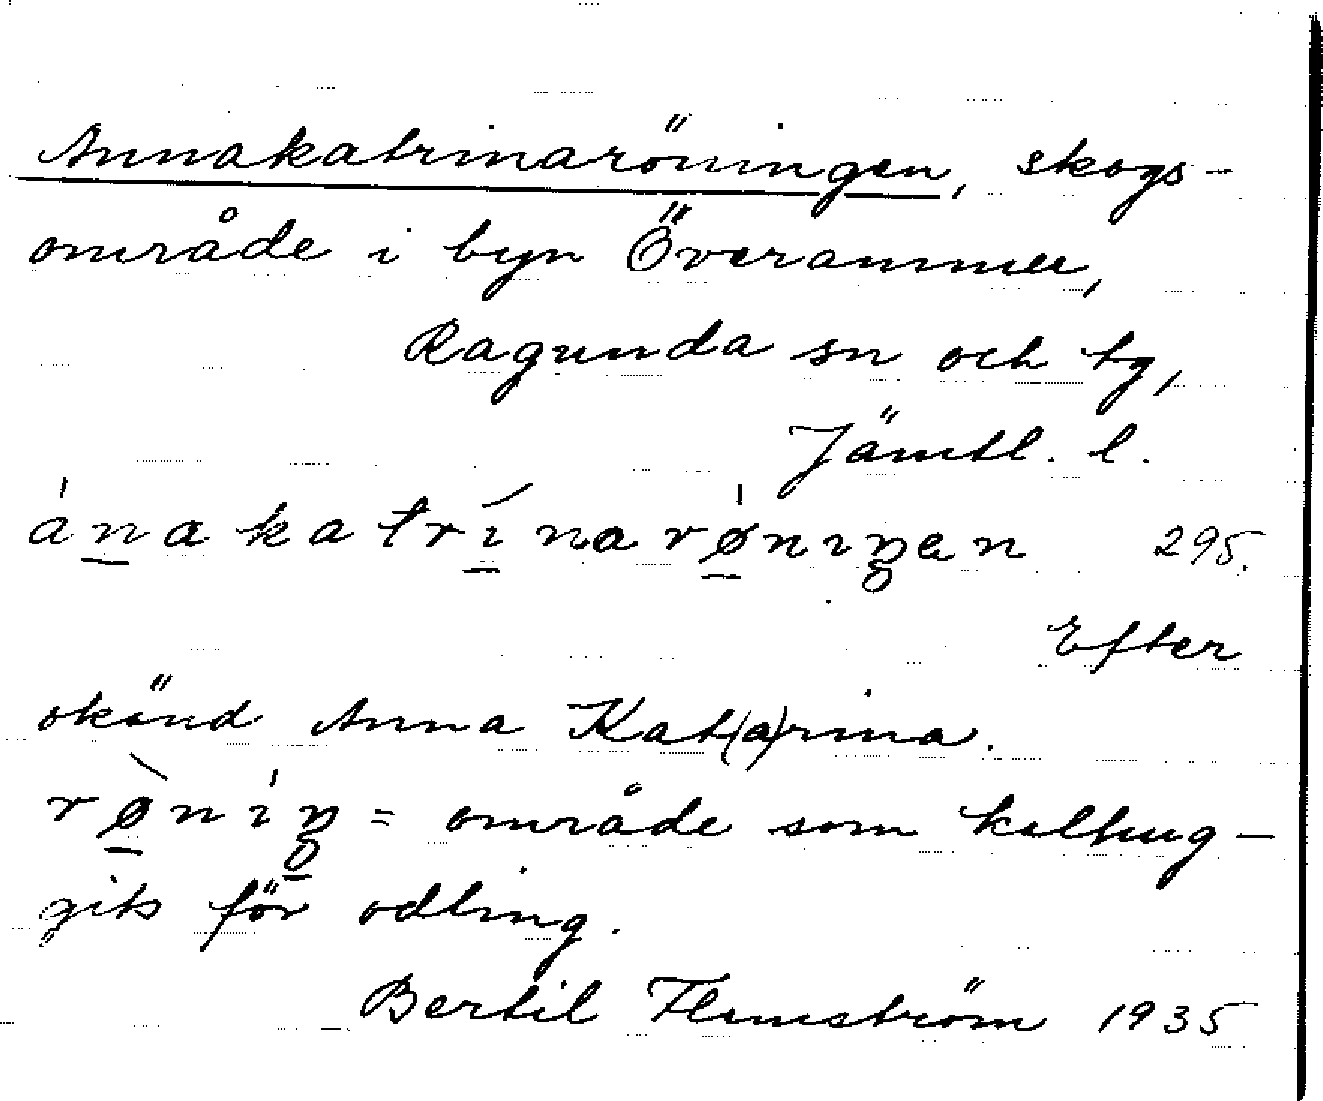 Annakatrinaröningen, skogs-
område i byn Överammer,
Ragunda sn och tg,
Jämtl. l.
ánạkatrínarø̀niŋen 295.
Efter
okänd Anna Kat(a)rina.
rø̀níŋ = område som kalhug-
gits för odling.
Bertil Flemström 1935